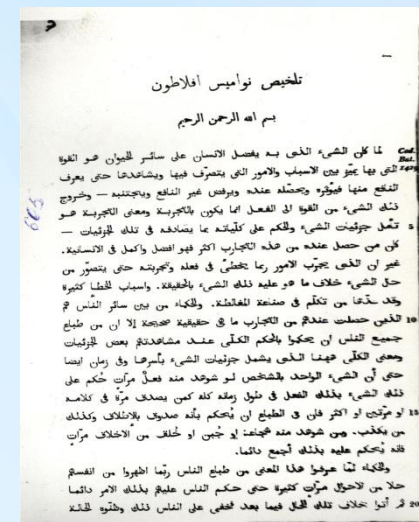 تلخيص نواميس افلاطون
بسم الله الرحمن الرحيم
لما كان الشىء الذى به يفضل الانسان على سائر الحيوان هو القوة Cod.
التى بها يميز بين الاسباب والامور التى يتصرف فيها ويشاهدها حتى يعرف
النافع منها فيؤثره ويحصله عنده ويرفض غير النافع ويجتنبه — وخروج
ذلك الشىء من القوة الى الفعل انما يكون بالتجربة ومعنى التجربة هو
تأمل جزئيات الشىء والحكم على كلياته بما يصادفه فى تلك الجزئيات — 5
كان من حصل عنده من هذه التجارب اكثر فهو افضل واكمل فى الانسانية.
غير ان الذى يجرب الامور ربما يخطئ فى فعله وتجربته حتى يتصور من
حال الشىء خلاف ما هو عليه ذلك الشىء بالحقيقة. واسباب الخطأ كثيرة
وقد عدّها من تكلم فى صناعة المغالطة. والحكماء من بين سائر الناس هم
الذين حصلت عندهم من التجارب ما هى حقيقية صحيحة إلا ان من طباع 10
جميع الناس ان يحكموا بالحكم الكلى عند مشاهدتهم بعض الجزئيات
ومعنى الكلى ههنا الذى يشمل جزئيات الشىء بأسرها وفى زمان ايضا
حتى أن الشىء الواحد بالشخص لو شوهد منه فعل مرات حُكم على
ذلك الشىء بذلك الفعل فى طول زمانه كله كمن يصدق مرة فى كلامه
او مرتين او اكثر فان فى الطباع ان يُحكم بأنه صدوق بالاطلاق وكذلك 15
من يكذب. ومن شوهد منه شجاعة او جُبن او خُلق من الاخلاق مرات
فانه يُحكم عليه بذلك أجمع دائما.
والحكماء لمّا عرفوا هذا المعنى من طباع الناس ربّما اظهروا من انفسهم
حالا من الاحوال مرات كثيرة حتى حكم الناس عليهم بذلك الامر دائما
ثم أتوا خلاف تلك الحال فيما بعد فخفى على الناس ذلك وظنوه الحالة 20